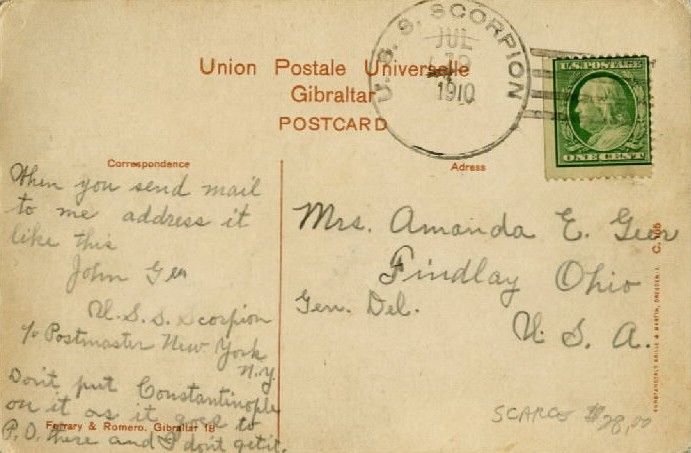 U.S.S. SCORPION
JUL
1910
U.S. POSTAGE
ONE CENT
Union Postale Universelle
Gibraltar
POSTCARD
Correspondence
Adress
When you send mail
to me address it
like this
John Geer
U.S.S. Scorpion
c/o Postmaster New York
N.Y.
Don't put Constantinople
on it as it goes to
P.O. there and I don't get it.
Ferrary & Romero. Gibraltar 18
Mrs. Amanda E. Geer
Findlay Ohio
Gen. Del.
U. S. A.
KUNSTANSTALT KRILLE & MARTIN, DRESDEN
SCARCE $28.00